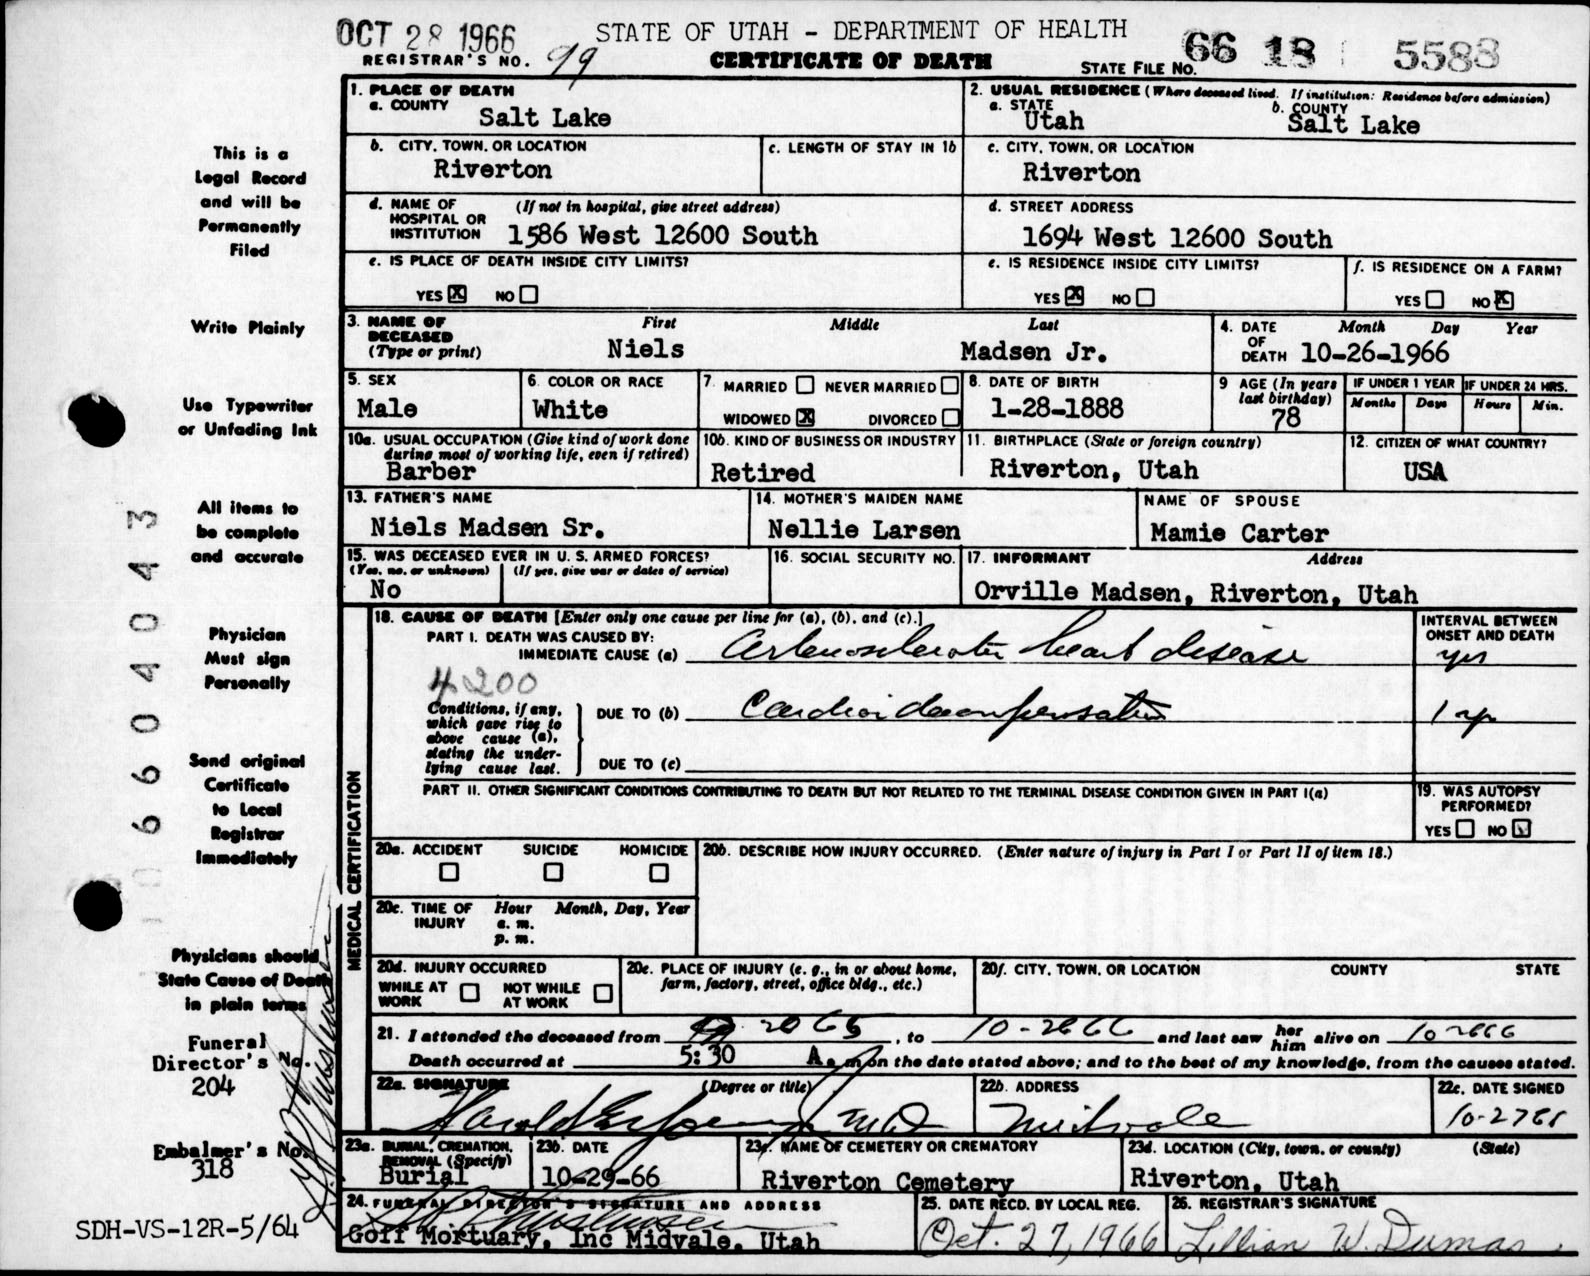 OCT 28 1966
STATE OF UTAH - DEPARTMENT OF HEALTH
REGISTRAR'S NO. 99
CERTIFICATE OF DEATH
STATE FILE NO. 66 18 5588
This is a
Legal Record
and will be
Permanently
Filed
Write Plainly
Use Typewriter
or Unfading Ink
All items to
be complete
and accurate
Physician
Must sign
Personally
Send original
Certificate
to Local
Registrar
Immediately
Physicians should
State Cause of Death
in plain terms
Funeral
Director's No.
204
Embalmer's No.
318
SDH-VS-12R-5/64
1. PLACE OF DEATH
a. COUNTY
Salt Lake
2. USUAL RESIDENCE (Where deceased lived. If institution: Residence before admission)
a. STATE
Utah
b. COUNTY
Salt Lake
b. CITY, TOWN, OR LOCATION
Riverton
c. LENGTH OF STAY IN 1b
c. CITY, TOWN, OR LOCATION
Riverton
d. NAME OF HOSPITAL OR INSTITUTION (If not in hospital, give street address)
1586 West 12600 South
d. STREET ADDRESS
1694 West 12600 South
e. IS PLACE OF DEATH INSIDE CITY LIMITS?
YES X NO
e. IS RESIDENCE INSIDE CITY LIMITS?
YES X NO
f. IS RESIDENCE ON A FARM?
YES NO X
3. NAME OF DECEASED (Type or print)
First Middle Last
Niels Madsen Jr.
4. DATE OF DEATH Month Day Year
10-26-1966
5. SEX
Male
6. COLOR OR RACE
White
7. MARRIED NEVER MARRIED
WIDOWED X DIVORCED
8. DATE OF BIRTH
1-28-1888
9 AGE (In years last birthday)
78
IF UNDER 1 YEAR
Months Days
IF UNDER 24 HRS.
Hours Min.
10a. USUAL OCCUPATION (Give kind of work done during most of working life, even if retired)
Barber
10b. KIND OF BUSINESS OR INDUSTRY
Retired
11. BIRTHPLACE (State or foreign country)
Riverton, Utah
12. CITIZEN OF WHAT COUNTRY?
USA
13. FATHER'S NAME
Niels Madsen Sr.
14. MOTHER'S MAIDEN NAME
Nellie Larsen
NAME OF SPOUSE
Mamie Carter
15. WAS DECEASED EVER IN U. S. ARMED FORCES?
(Yes, no, or unknown) (If yes, give war or dates of service)
No
16. SOCIAL SECURITY NO.
17. INFORMANT Address
Orville Madsen, Riverton, Utah
MEDICAL CERTIFICATION
18. CAUSE OF DEATH [Enter only one cause per line for (a), (b), and (c).]
PART I. DEATH WAS CAUSED BY:
IMMEDIATE CAUSE (a) Arteriosclerotic heart disease
INTERVAL BETWEEN ONSET AND DEATH
yrs
4200
Conditions, if any,
which gave rise to
above cause (a),
stating the under-
lying cause last.
DUE TO (b) Cardiac decompensation
1 yr
DUE TO (c)
PART II. OTHER SIGNIFICANT CONDITIONS CONTRIBUTING TO DEATH BUT NOT RELATED TO THE TERMINAL DISEASE CONDITION GIVEN IN PART I(a)
19. WAS AUTOPSY PERFORMED?
YES NO
20a. ACCIDENT SUICIDE HOMICIDE
20b. DESCRIBE HOW INJURY OCCURRED. (Enter nature of injury in Part I or Part II of item 18.)
20c. TIME OF INJURY Hour Month, Day, Year
a. m.
p. m.
20d. INJURY OCCURRED
WHILE AT WORK NOT WHILE AT WORK
20e. PLACE OF INJURY (e. g., in or about home, farm, factory, street, office bldg., etc.)
20f. CITY, TOWN, OR LOCATION COUNTY STATE
21. I attended the deceased from , to and last saw her him alive on
Death occurred at 5:30 A. m on the date stated above; and to the best of my knowledge, from the causes stated.
22a. SIGNATURE (Degree or title)
Harold MD
22b. ADDRESS
Midvale
22c. DATE SIGNED
23a. BURIAL, CREMATION, REMOVAL (Specify)
Burial
23b. DATE
10-29-66
23c. NAME OF CEMETERY OR CREMATORY
Riverton Cemetery
23d. LOCATION (City, town, or county) (State)
Riverton, Utah
24. FUNERAL DIRECTOR'S SIGNATURE AND ADDRESS
Goff Mortuary, Inc Midvale, Utah
25. DATE RECD. BY LOCAL REG.
Oct. 27, 1966
26. REGISTRAR'S SIGNATURE
Lillian W. Dumas